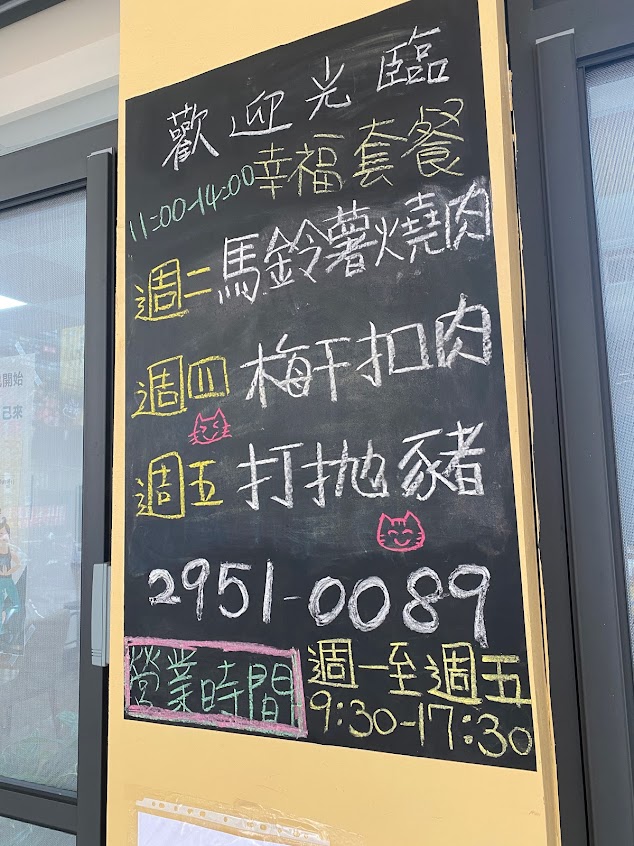 歡迎光臨
11:00-14:00幸福套餐
週二馬鈴薯燒肉
週四梅干扣肉
週五打拋豬
2951-0089
營業時間
週一至週五
9:30-17:30
開始
已來